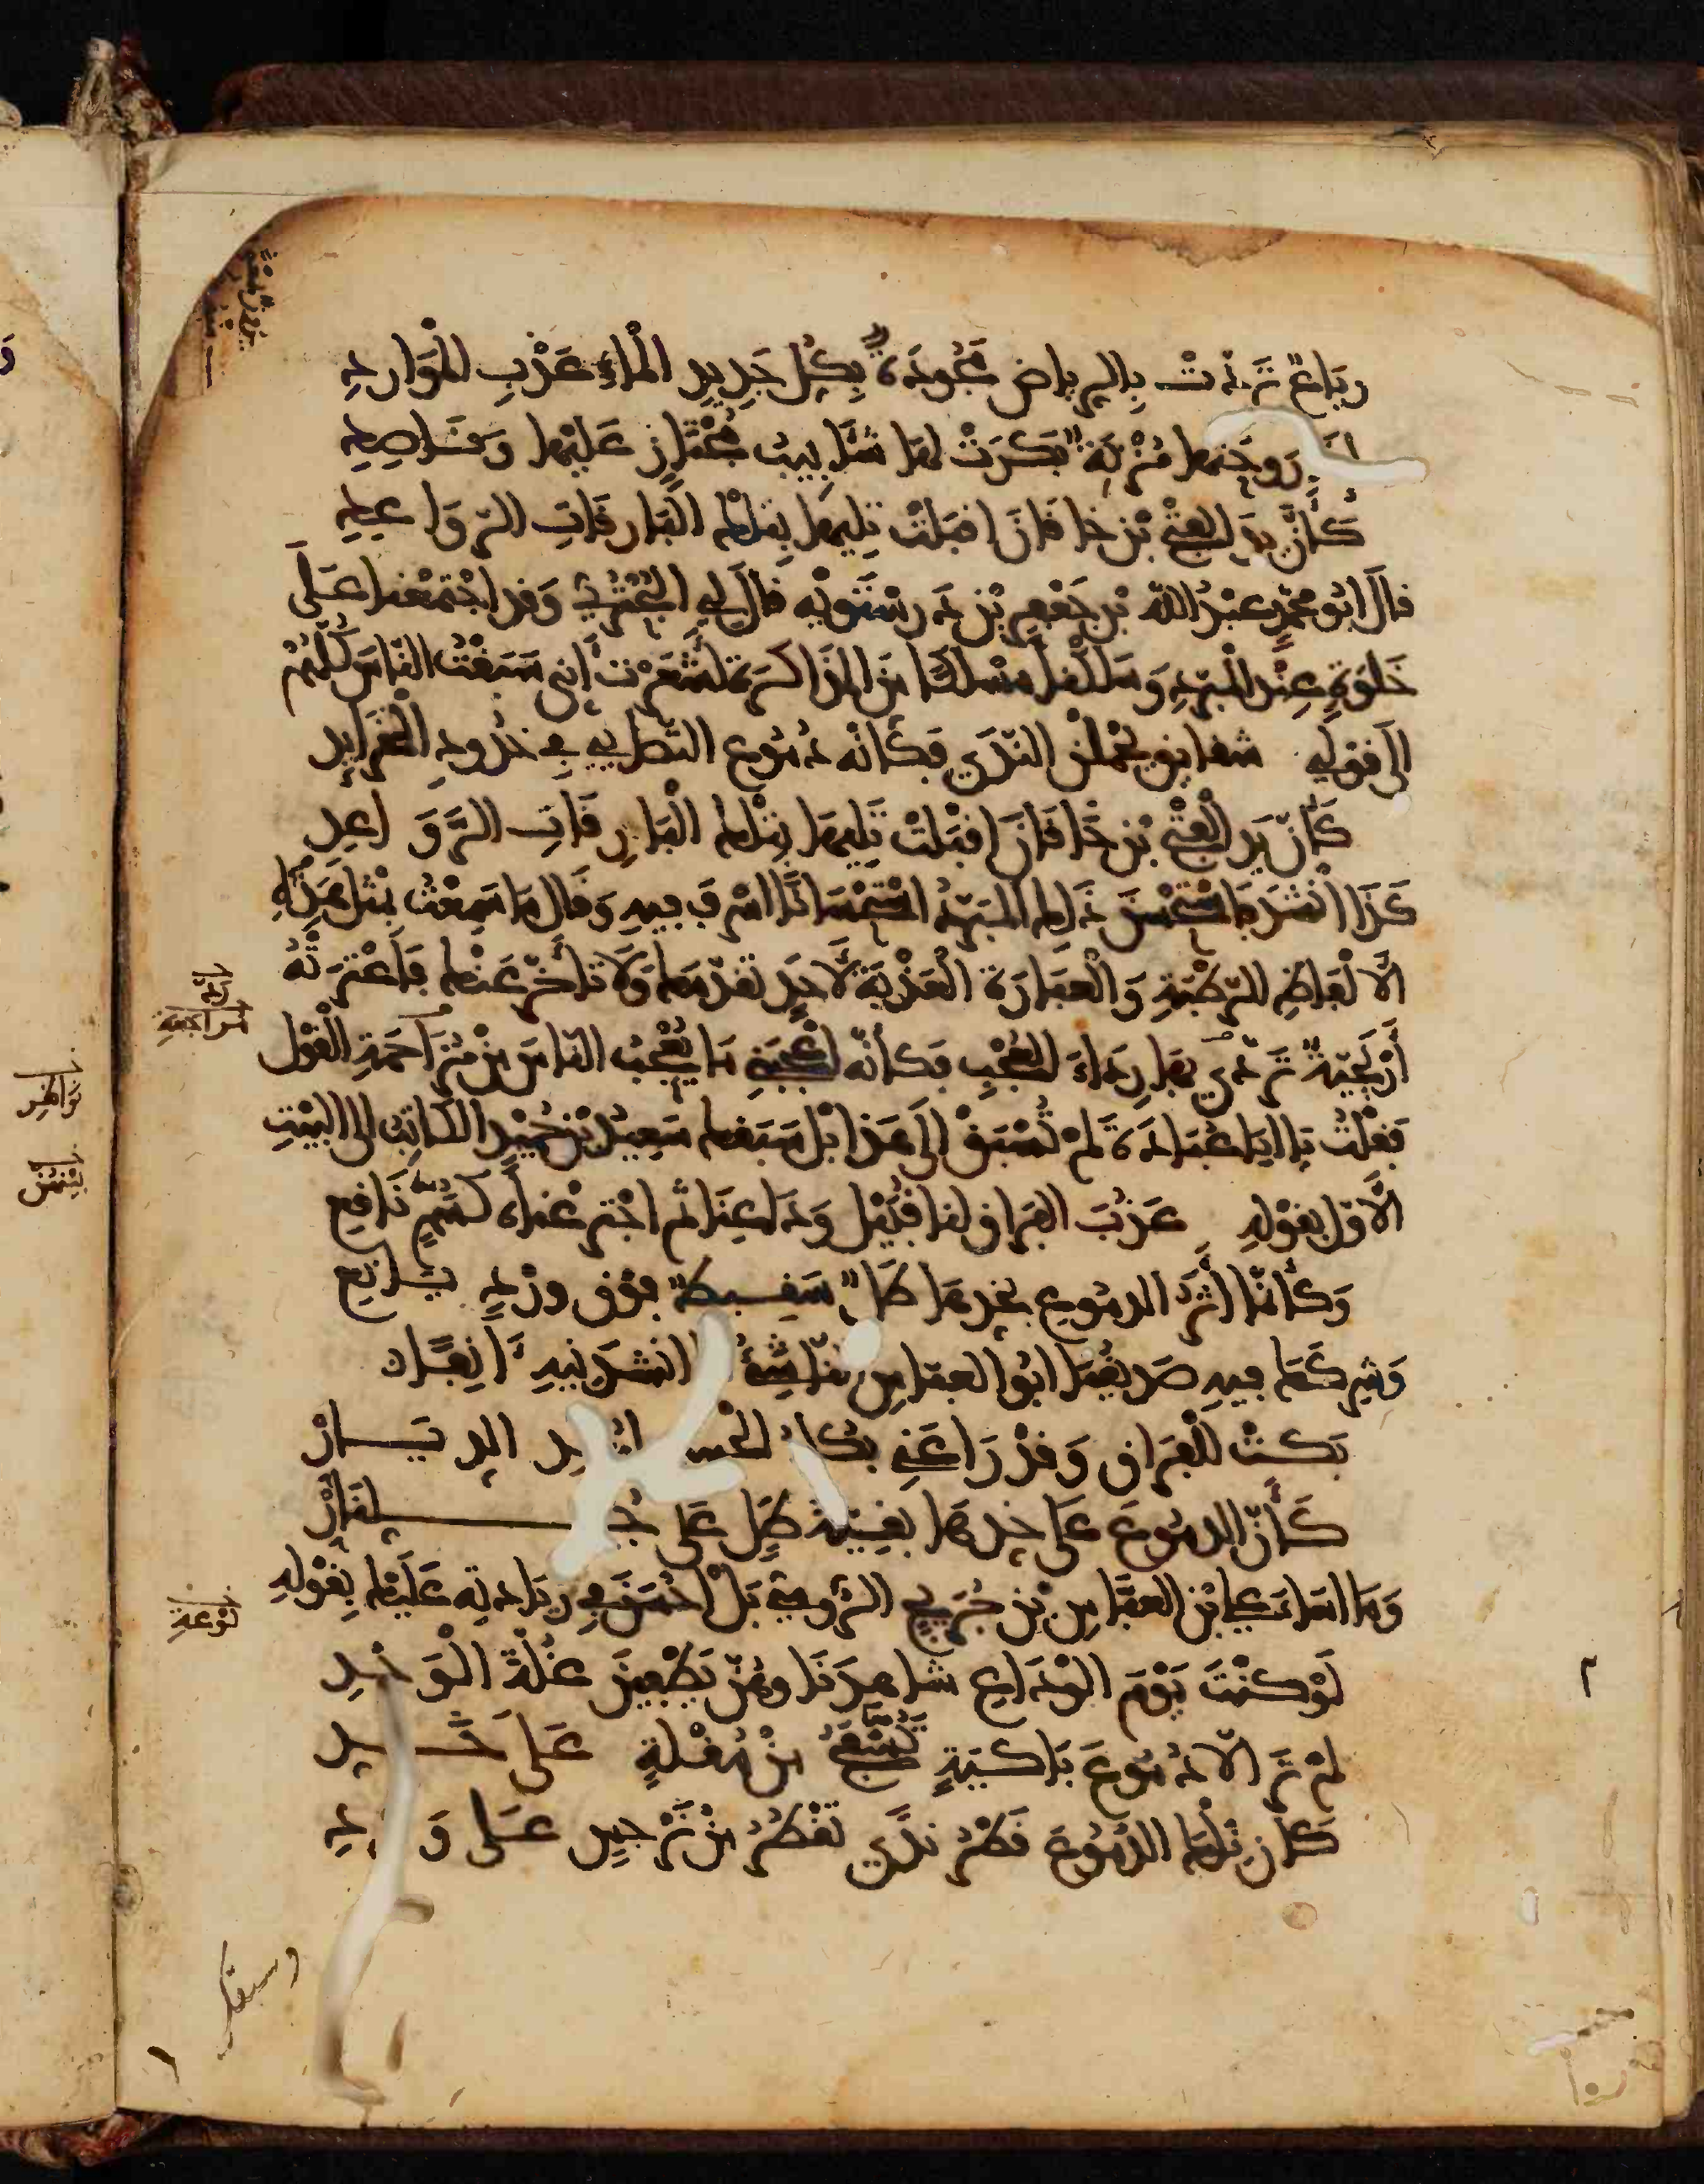 رِبَاعٌ تَرَدَّتْ بِالرِّيَاضِ مَجُودَةٌ بِكُلِّ جَدِيدِ الْمَاءِ عَذْبِ الْمَوَارِدِ
رَوحتها مُزْنَةٌ بَكَرَتْ لَهَا شَآبِيبُ مُجْتَازٍ عَلَيْهَا وَقَاصِدِ
كَأَنَّ يَدَ الفَتْحِ بْنِ خاقَانَ اقبَلَتْ تَلِيهَا بِتِلْكَ البَارِقَاتِ الرَّوَاعِدِ
قالَ ابُو محمّدٍ عبْدُ اللهِ بْن جَعْفَرِ بْنِ دَرَسْتَوَيْهِ قالَ لِي البُحْتُرِيُّ وَقد اجْتَمَعْنا عَلَى
خَلوَةٍ عِنْد الْمبَرّدِ وَسَلَكْنا مَسْلَكًا مِنَ المذَاكَرَةِ أَشَعَرْتَ أَنّي سَبَقْتُ النّاسَ كُلَّهُمْ
الَى قوْلِي شقايق يَحْمِلْنَ النَّدَى فَكَأَنَّهُ دُمُوعُ التَّصَابِي فِي خُدُودِ الْخَرَايِدِ
كَأَنَّ يَدَ الْفَتْحِ بْنِ خَاقَانَ اقبَلَتْ تَلِيهَا بِتِلْكَ الْبَارِقَاتِ الرَّوَاعِدِ
كَذَا أنْشَدَ فَاسْتَحْسَنَ ذَلِكَ المبَرّدُ اسْتِحْسَانًا اسْرَفَ فِيهِ وَقَالَ مَا سَمِعْتُ مِثْلَ هَذِهِ
الْأَلْفَاظِ الرَّطْبَةِ وَالْعِبَارَةِ الْعَذْبَةِ لِأَحَدٍ تَقَدَّمَكَ وَلَا تَأَخَّرَ عَنْكَ فَاعْتَرَتْهُ
أَرْيَحِيَّةٌ تَرَدَّى بِهَا رِدَاءَ العُجْبِ فكأنّه أعْجَبَنِي مَا يُعْجِبُ النّاسَ مِنْ مُرَاجَعَةِ الْقَوْلِ
فَقُلْتُ يَا ابَا عُبَادَةَ لَمْ تُسْبَقْ الَى هَذَا بَلْ سَبَقَكَ سَعِيدُ بْنُ حُمَيْدٍ الكَاتِبُ الَى البَيْتِ
الْأَوَّلِ بقَوْلِهِ عَذُبَ الفِرَاقُ لنا قُبَيْلَ وَدَاعِنَا ثُمَّ اجْتَرَعْنَاهُ كَسُمٍّ نَاقِعِ
وَكَأَنَّمَا أَثَرُ الدمُوعِ بخَدِّهَا طَلٌّ سَقِيطٌ فَوْقَ وَرْدٍ يَانِعِ
وَشَرِكَكُمَا فِيهِ صَدِيقُنَا ابُو العبّاسِ النّاشِئُ أنشَدَنِيهِ آنِفًا
بَكَتْ لِلْفِرَاقِ وَقَدْ رَاعَنِي بُكَاءُ الْحَبِ الدِّيَارْ
كَأَنَّ الدمُوعَ عَلَى خَدِّهَا بَقِيَّةُ طَلٍّ عَلَى جُلَّنَارْ
وَمَا اسَاءَ عليُّ بْنُ العَبَّاسِ بْنِ جُرَيْجٍ الرُّومِيُّ بَلْ احْسَنَ فِي زِيَادَتِهِ عَلَيْكَ بِقَوْلِهِ
لَوْ كُنْتَ يَوْمَ الْوَدَاعِ شَاهِدَنَا وهُنَّ يُطْفِينَ غُلَّةَ الْوَجْدِ
لَمْ تَرَ الّا دُمُوعَ بَاكِيَةٍ تُسْفَحُ مِنْ مُقْلَةٍ عَلَى خَدِّ
كَأَنَّ تِلْكَ الدُّمُوعَ قَطْرُ نَدًى تَقْطُرُ مِنْ نَرْجِسٍ عَلَى وَرْدِ
مُرَاجَعَةِ